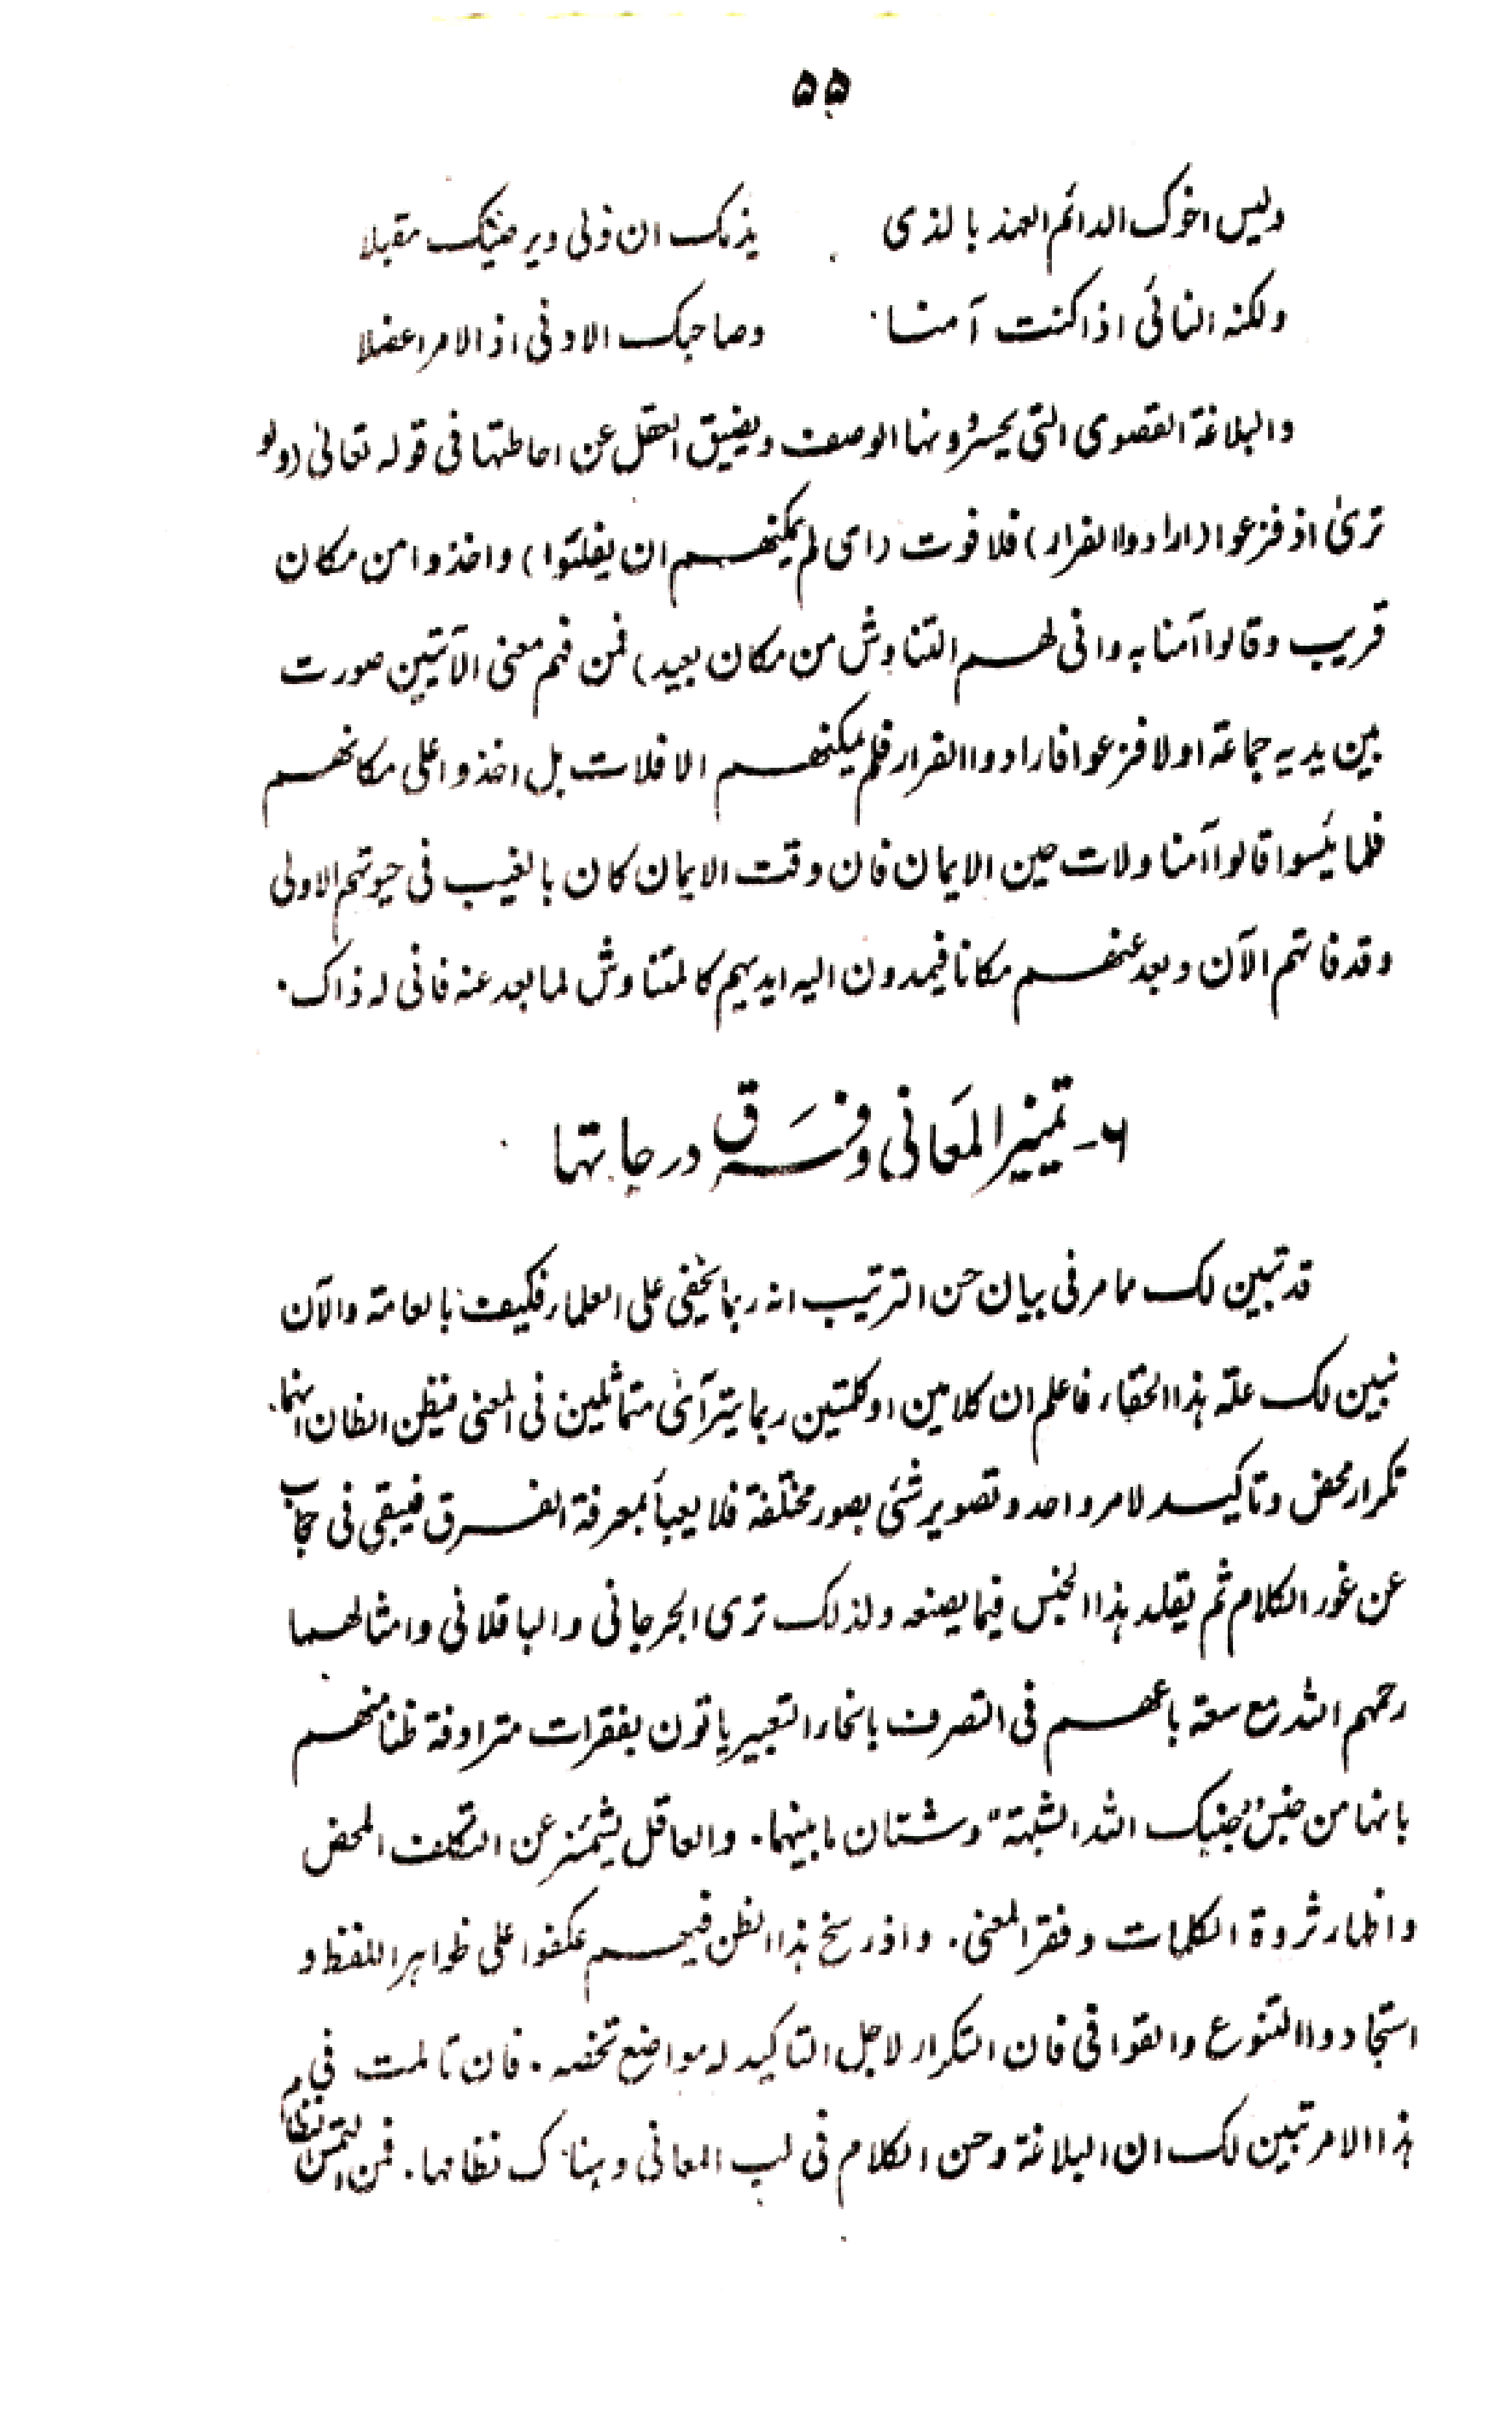 ۵۵
وليس اخوك الدائم العهد بالذى يذمك ان ولى ويرضيك مقبلا
ولكنه النائى اذا كنت آمنا وصاحبك الادنى اذ الامر اعضلا
والبلاغة القصوى التى يحسر دونها الوصف ويضيق العقل عن احاطتها فى قوله تعالى (ولو
ترىٰ اذ فزعوا (ارادوا الفرار) فلا فوت (اى لم يمكنهم ان يفلتوا) واخذوا من مكان
قريب وقالوا آمنا به وانى لهم التناوش من مكان بعيد) فمن فهم معنى الآيتين صورت
بين يديه جماعة اولا فزعوا فارادوا الفرار فلم يمكنهم الافلات بل اخذوا على مكانهم
فلما يئسوا قالوا آمنا ولات حين الايمان فان وقت الايمان كان بالغيب فى حيوتهم الاولى
وقد فاتهم الآن وبعد عنهم مكانا فيمدون اليه ايديهم كالمتناوش لما بعد عنه فانى له ذاك.
۶- تمييز المعانى وفرق درجاتها
قد تبين لك مما مر فى بيان حسن الترتيب انه ربما يخفى على العلماء فكيف بالعامة والآن
نبين لك علة هذا الخفاء، فاعلم ان كلامين او كلمتين ربما يترآىٰ متماثلين فى المعنى فيظن الظان انهما
تكرار محض وتأكيد لامر واحد وتصوير شئى بصور مختلفة فلا يعبأ بمعرفة الفرق فيبقى فى حجاب
عن غور الكلام ثم يقلد هذا الجنس فيما يصنعه ولذلك ترى الجرجانى والباقلانى وامثالهما
رحمهم الله مع سعة باعهم فى التصرف بانحاء التعبير ياتون بفقرات مترادفة ظنا منهم
بانها من جنس "جنبك الله الشبهة" وشتان ما بينهما. والعاقل يشمئز عن التكلف المحض
واظهار ثروة الكلمات وفقر المعنى. واذ رسخ هذا الظن فيهم عكفوا على ظواهر اللفظ و
استجادوا التنوع والقوافى فان التكرار لاجل التاكيد له مواضع تخصه. فان تاملت فى
هذا الامر تبين لك ان البلاغة وحسن الكلام فى لب المعانى وهناك نظامها. فمن التمس